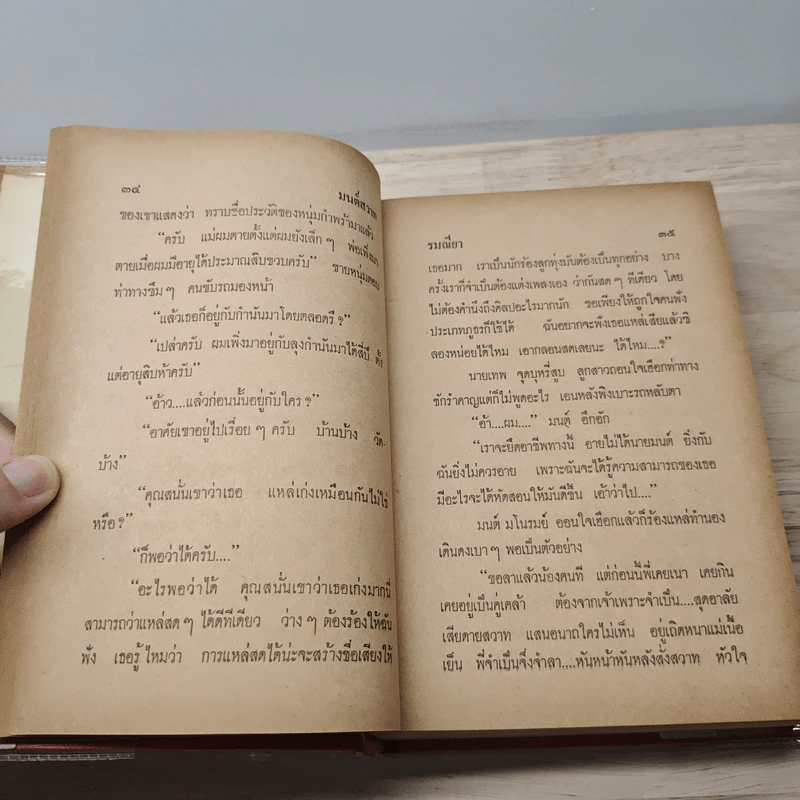 ๓๔
มนต์สวาท
ของเขาแสดงว่า ทราบชื่อประวัติของหนุ่มกำพร้ามาแล้ว
“ครับ แม่ผมตายตั้งแต่ผมยังเล็ก ๆ พ่อเพิ่งมา
ตายเมื่อผมมีอายุได้ประมาณสิบขวบครับ” ชายหนุ่มตอบ
ท่าทางซึม ๆ คนขับรถมองหน้า
“แล้วเธอก็อยู่กับกำนันมาโดยตลอดรึ ?”
“เปล่าครับ ผมเพิ่งมาอยู่กับลุงกำนันมาได้สี่ปี ตั้ง
แต่อายุสิบห้าครับ”
“อ้าว....แล้วก่อนนั้นอยู่กับใคร ?”
“อาศัยเขาอยู่ไปเรื่อย ๆ ครับ บ้านบ้าง วัด-
บ้าง”
“คุณสนั่นเขาว่าเธอ แหล่เก่งเหมือนกันไม่ใช่
หรือ ?”
“ก็พอว่าได้ครับ....”
“อะไรพอว่าได้ คุณสนั่นเขาว่าเธอเก่งมากนี่
สามารถว่าแหล่สด ๆ ได้ดีทีเดียว ว่าง ๆ ต้องร้องให้ฉัน
ฟัง เธอรู้ไหมว่า การแหล่สดได้น่ะจะสร้างชื่อเสียงให้
รมณียา
๓๕
เธอมาก เราเป็นนักร้องลูกทุ่งมันต้องเป็นทุกอย่าง บาง
ครั้งเราก็จำเป็นต้องแต่งเพลงเอง ว่ากันสด ๆ ทีเดียว โดย
ไม่ต้องคำนึงถึงศิลปอะไรมากนัก ขอเพียงให้ถูกใจคนฟัง
ประเภทภูธรก็ใช้ได้ ฉันอยากจะฟังเธอแหล่เสียแล้วซิ
ลองหน่อยได้ไหม เอากลอนสดเลยนะ ได้ไหม....?”
นายเทพ จุดบุหรี่สูบ ลูกสาวถอนใจเฮือกท่าทาง
ชักรำคาญแต่ก็ไม่พูดอะไร เอนหลังพิงเบาะรถหลับตา
“อ้า....ผม....” มนต์ อึกอัก
“เราจะยึดอาชีพทางนี้ อายไม่ได้นายมนต์ ยิ่งกับ
ฉันยิ่งไม่ควรอาย เพราะฉันจะได้รู้ความสามารถของเธอ
มีอะไรจะได้หัดสอนให้มันดีขึ้น เอ้าว่าไป....”
มนต์ มโนรมย์ ถอนใจเฮือกแล้วก็ร้องแหล่ทำนอง
เดินดงเบา ๆ พอเป็นตัวอย่าง
“ขอลาแล้วน้องคนที แต่ก่อนนี้พี่เคยเนา เคยกิน
เคยอยู่เป็นคู่เคล้า ต้องจากเจ้าเพราะจำเป็น....สุดอาลัย
เสียดายสวาท แสนอนาถใครไม่เห็น อยู่เถิดหนาแม่เนื้อ
เย็น พี่จำเป็นจึงจำลา....หันหน้าหันหลังสั่งสวาท หัวใจ